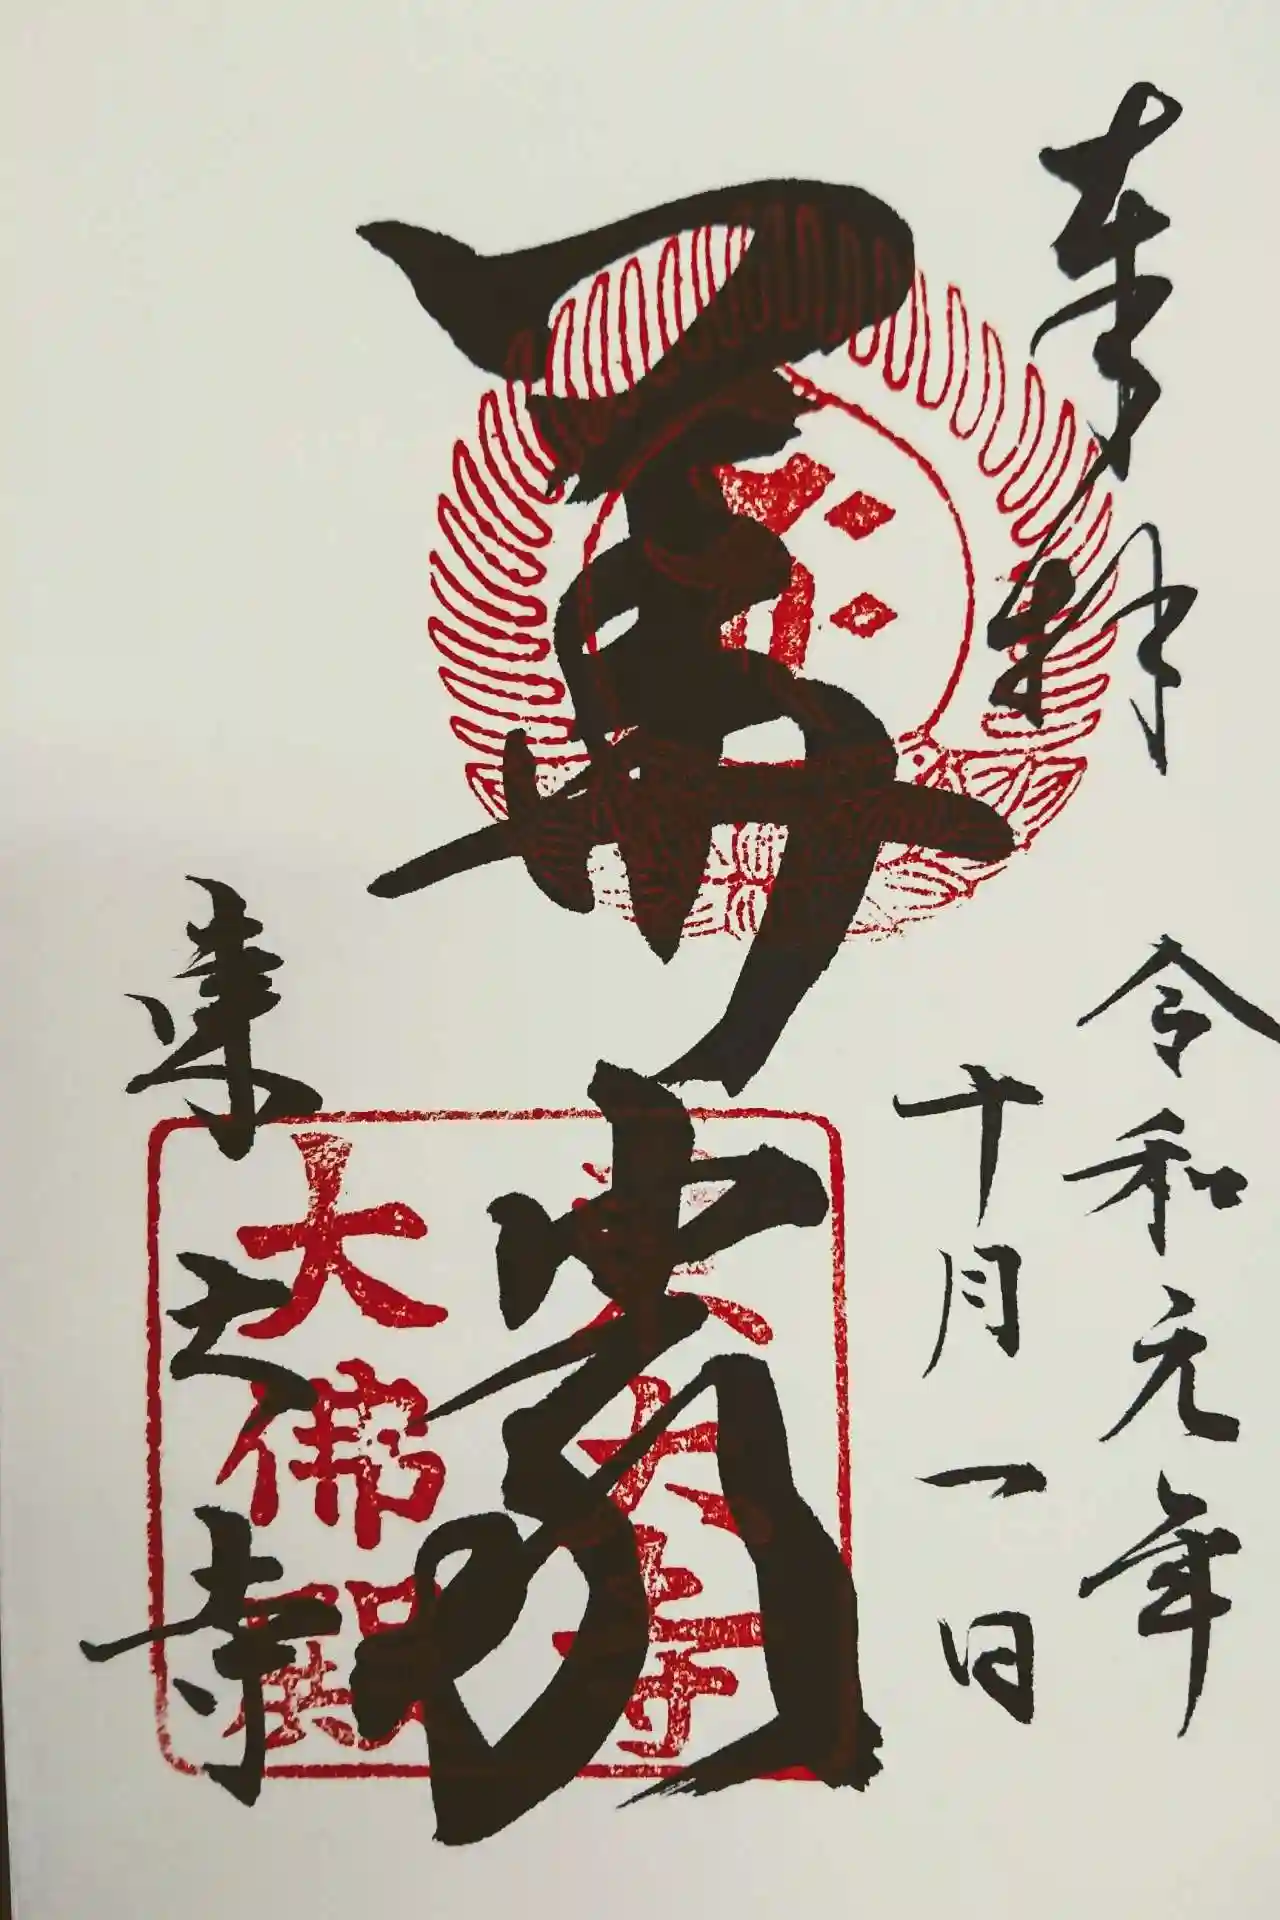 奉拝
令和元年
十月一日
華厳
東大寺
大佛殿
東大寺